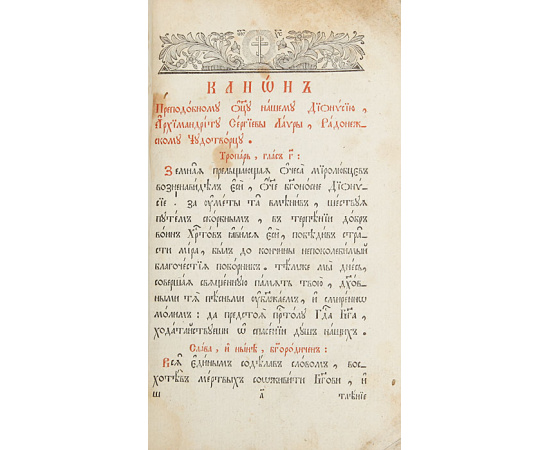 КАНѠ́НЪ
Преподо́бному ѻ҆ц҃у̀ на́шему Дїѻнѵ́сїю ,
А҆рхїмандрі́ту Се́ргїевы Ла́ѵры , Ра́донеж-
скому Чꙋдотво́рцу .
Тропа́рь , гла́съ г҃ :
Земна́ѧ прельща́ющаѧ ѻ҆чеса̀ мїролю́бцевъ
возненави́дѣлъ є҆сѝ , ѻ҆́тче бг҃оно́сне Дїѻнѵ́-
сїе : за ᲂу҆ме́ты та̑ вмѣни́въ , ше́ствуѧ
путе́мъ ско́рбнымъ , въ терпѣ́нїи до́бръ
во́инъ Хрⷭ҇то́въ ꙗ҆ви́лсѧ є҆сѝ , побѣди́въ стра̑-
сти мі́ра , бы́лъ до кончи́ны непоколеби́мый
благоче́стїѧ побо́рникъ . тѣ́мже мы̀ дне́сь ,
соверша́ѧ свѧще́нную па́мѧть твою̀ , дꙋхо́в-
ными тѧ̀ пѣ́сньми ᲂу҆блажа́емъ , и҆ смире́ннѡ
мо́лимъ : да предстоѧ̀ прⷭ҇то́лу Гдⷭ҇а Бг҃а ,
хода́тайствуеши ѡ҆ спасе́нїи ду́шъ на́шихъ .
Сла́ва , и҆ ны́нѣ , бг҃оро́диченъ :
Всѧ̑ є҆ди́нымъ содѣ́лавъ сло́вомъ , вос-
хотѣ́въ ме́ртвыхъ сѡживи́ти Бг҃ови , и҆
ш а҃ тлѣ́нїе